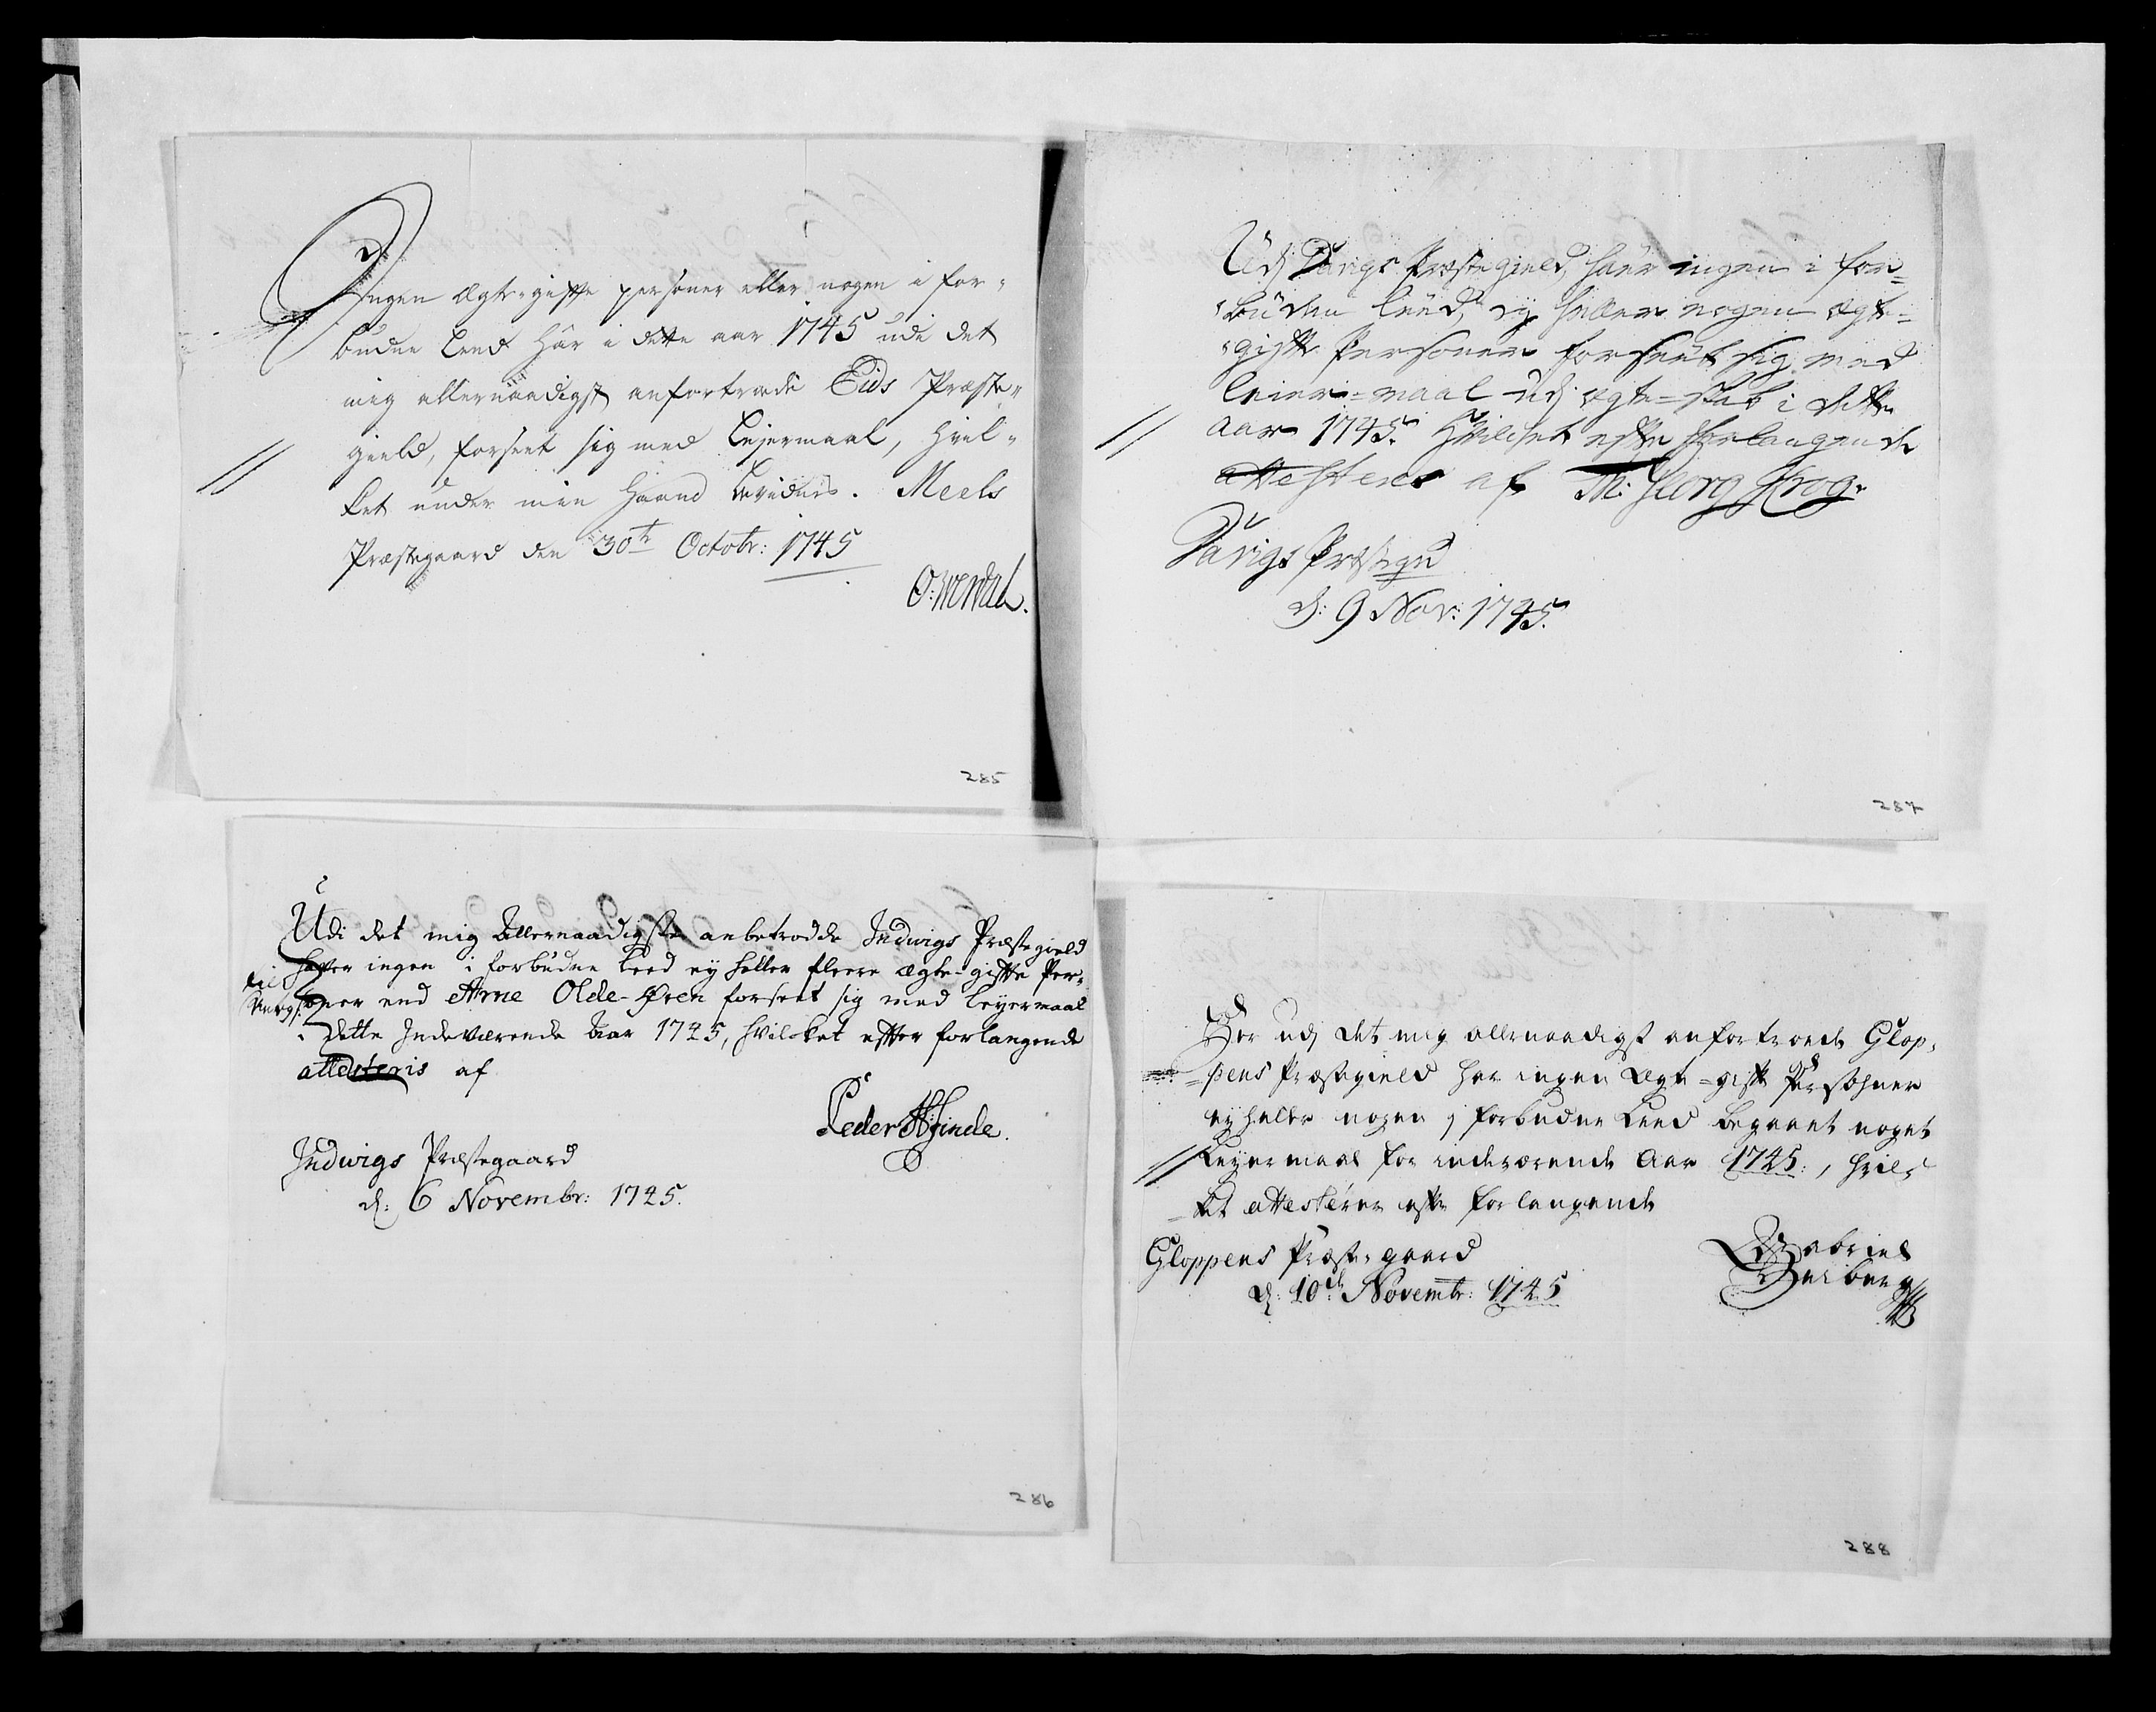 Ingen Ægte-gifte personer eller nogen i for-
budne Leed har i dette aar 1745 udi det
mig allernaadigst anfortroede Eids Præste-
gield, forseet sig med Leyermaal, hvil-
ket under min Haand bevidnes. Meels
Præstegaard den 30te Octobr: 1745
285
Udj Præstegield, haer ingen i for-
budne leed, ej heller nogen ægte-
gifte Personer forseet sig med
leier-maal udj ægte-skab i dette
aar 1745. Hvilchet efter forlangende
attesteres af M: Georg Krog.
Præstegrd
d: 9 Nov: 1745.
287
Udi det mig Allernaadigste anbetrodde Indvigs Præstegield
haver ingen i forbudne Leed ey heller fleere ægte-gifte Per-
soner end Arne Olde-Øren forseet sig med Leyermaal
i dette Indeværende Aar 1745, hvilcket efter forlangende
attesteris af
Peder Hjinde.
Indvigs Præstegaard
d: 6 Novembr: 1745.
286
Her udj det mig allernaadigst anfortroede Glop-
pens Præstegield har ingen Ægte-gifte Persohner
ey heller nogen j forbudne Leed begaaet noget
Leyermaal for indeværende Aar 1745:, hvil-
ket attesterer efter forlangende
Gloppens Præste-gaard
d: 10de Novembr: 1745
Gabriel
Heiberg
288